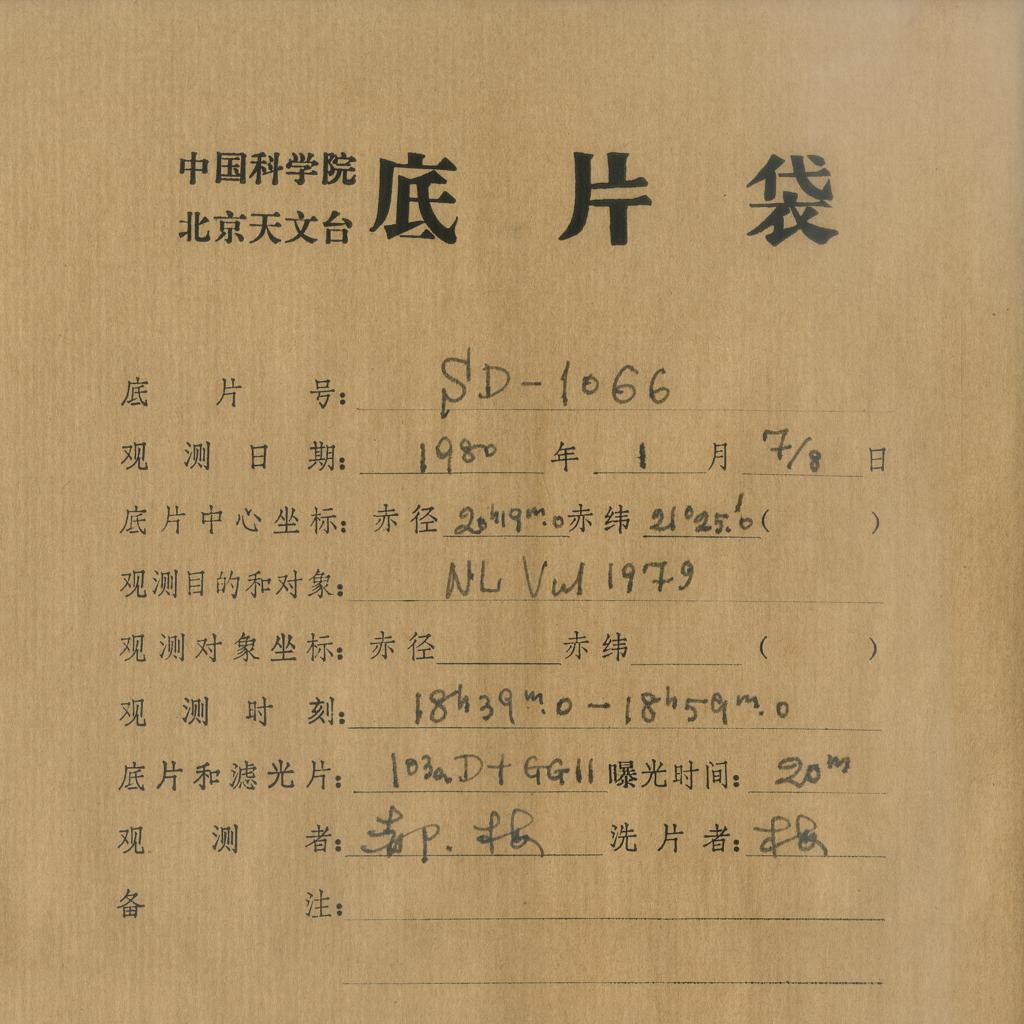 中国科学院
北京天文台
底片袋
底片号: SD-1066
观测日期: 1980年1月7/8日
底片中心坐标: 赤径 20h19m.0 赤纬 21°25'.0 ( )
观测目的和对象: NL Vul 1979
观测对象坐标: 赤径 赤纬 ( )
观测时刻: 18h39m.0 - 18h59m.0
底片和滤光片: 103aD+GG11 曝光时间: 20m
观测者: 洗片者:
备注: